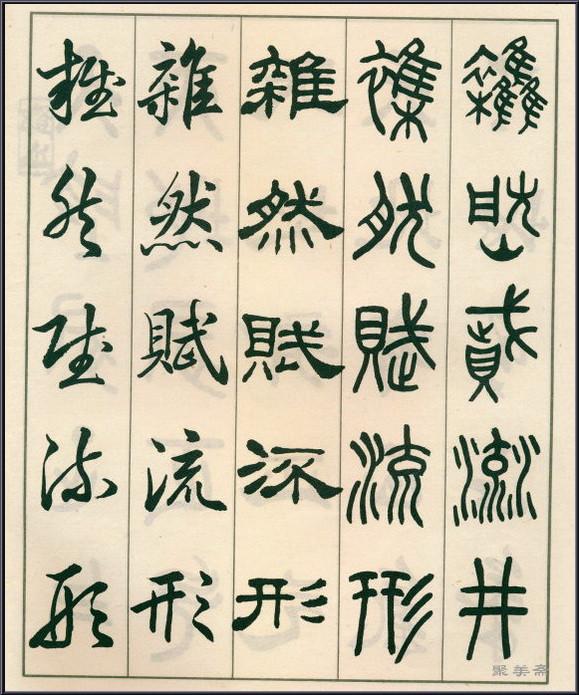 雜然賦流井
雜然賦流形
雜然賦流形
雜然賦流形
雜然賦流形
聚美斋